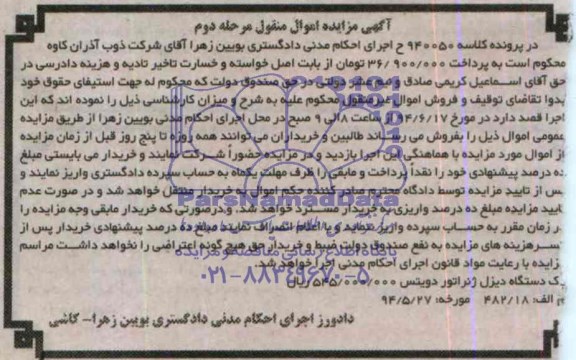 آگهی مزایده اموال منقول مرحله دوم
در پرونده کلاسه ۹۴۰۰۵۰ ح اجرای احکام مدنی دادگستری بویین زهرا آقای شرکت ذوب آذران کاوه
محکوم است به پرداخت ۳۶/۹۰۰/۰۰۰ تومان از بابت اصل خواسته و خسارت تاخیر تادیه و هزینه دادرسی در
حق آقای اسماعیل کریمی صادق و نیم عشر دولتی در حق صندوق دولت که محکوم له جهت استیفای حقوق خود
بدوا تقاضای توقیف و فروش اموال غیرمنقول محکوم علیه به شرح و میزان کارشناسی ذیل را نموده اند که این
اجرا قصد دارد در مورخ ۹۴/۶/۱۷ از ساعت ۸ الی ۹ صبح در محل اجرای احکام مدنی بویین زهرا از طریق مزایده
عمومی اموال ذیل را بفروش می رساند طالبین و خریداران می توانند همه روزه تا پنج روز قبل از زمان مزایده
از اموال مورد مزایده با هماهنگی این اجرا بازدید و در مزایده حضوراً شرکت نمایند و خریدار می بایستی مبلغ
ده درصد پیشنهادی خود را نقداً پرداخت و مابقی را ظرف مهلت یکماه به حساب سپرده دادگستری واریز نمایند و
پس از تایید مزایده توسط دادگاه محترم صادر کننده حکم اموال به خریدار منتقل خواهد شد و در صورت عدم
تایید مزایده مبلغ ده درصد واریزی به خریدار مسترد خواهد شد. و درصورتی که خریدار مابقی وجه مزایده را
در زمان مقرر به حساب سپرده واریز ننماید و یا اعلام انصراف نمایند مبلغ ده درصد پیشنهادی خریدار پس از
کسر هزینه های مزایده به نفع صندوق دولت ضبط و خریدار حق هیچ گونه اعتراضی را نخواهد داشت مراسم
مزایده با رعایت مواد قانون اجرای احکام مدنی اجرا خواهد شد.
یک دستگاه دیزل ژنراتور دویتس ۵۴۵/۰۰۰/۰۰۰ ریال
م الف: ۴۸۲/۱۸ مورخه: ۹۴/۵/۲۷
دادورز اجرای احکام مدنی دادگستری بویین زهرا- کاشی
ParsNamadData
پایگاه اطلاع رسانی مناقصه و مزایده
۰۲۱-۸۸۳۴۹۶۷۰-۵